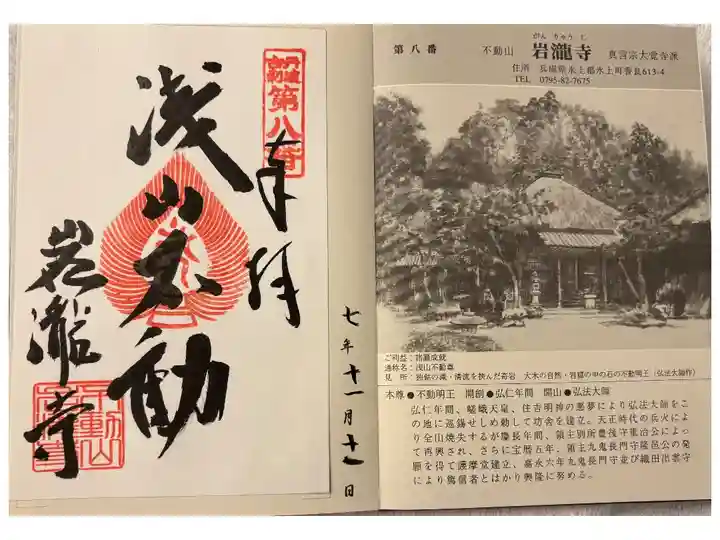 丹波古刹
第八番
奉拝
浅山不動
岩瀧寺
不動山
七年十一月十一日
がんりゅうじ
第八番 不動山 岩瀧寺 真言宗大覚寺派
住所 兵庫県氷上郡氷上町香良613-4
TEL 0795-82-7675
ご利益：諸願成就
通称名：浅山不動尊
見所：独鈷の滝・清流を挟んだ奇岩 大木の自然・岩窟の中の石の不動明王（弘法大師作）
本尊●不動明王 開創●弘仁年間 開山●弘法大師
弘仁年間、嵯峨天皇、住吉明神の悪夢により弘法大師をこ
の地に巡錫せしめ勅して坊舎を建立。天正時代の兵火によ
り全山焼失するが慶長年間、領主別所豊後守重治公によっ
て再興され、さらに宝暦五年、領主九鬼長門守隆邑公の発
願を得て護摩堂建立、嘉永六年九鬼長門守並び織田出雲守
により篤信者とはかり興隆に努める。